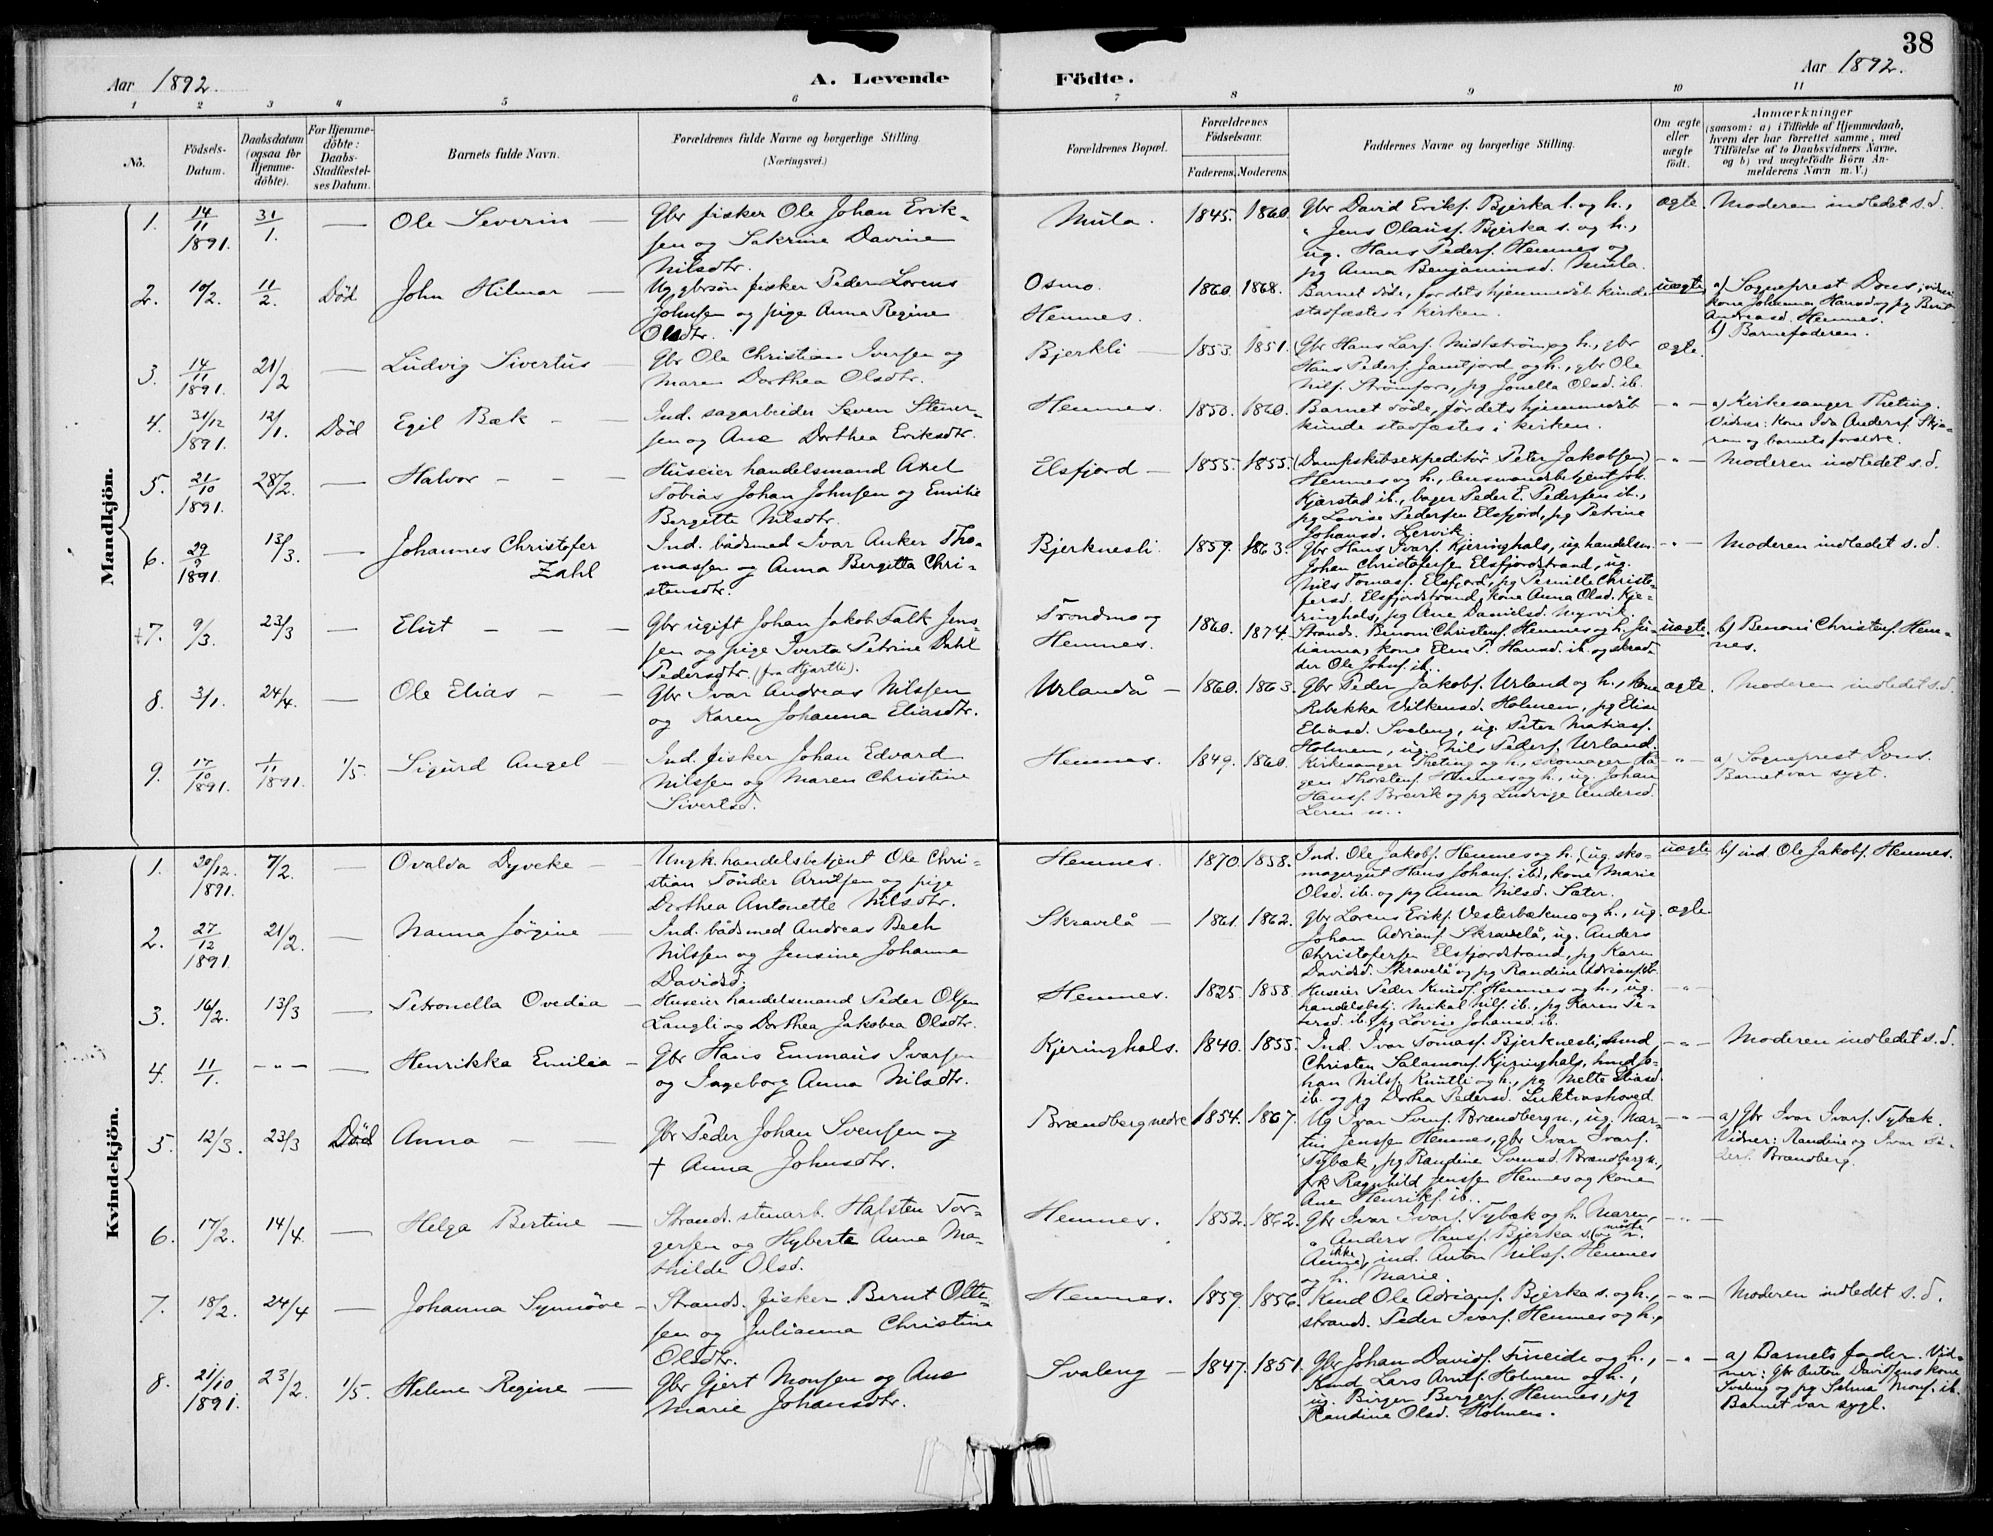 38
Aar 1892.
A. Levende Födte.
Aar 1892.
1 2 3 4 5 6 7 8 9 10 11
No.
Födsels-
Datum.
Daabsdatum
(ogsaa for
Hjemme-
döbte).
For Hjemme-
döbte:
Daabs-
Stadfæstel-
ses Datum.
Barnets fulde Navn.
Forældrenes fulde Navne og borgerlige Stilling.
(Næringsvei.)
Forældrenes Bopæl.
Forældrenes
Födselsaar.
Faderens. Moderens.
Faddernes Navne og borgerlige Stilling.
Om ægte
eller
uægte
födt.
Anmærkninger
(saasom: a) i Tilfælde af Hjemmedaab,
hvem der har forrettet samme, med
Tilföielse af to Daabsvidners Navne,
og b) ved uægtefödte Börn An-
melderens Navn m. V.)
Mandkjön.
1. 14/11 1891. 31/1. — Ole Severin —
Gbr fisker Ole Johan Erik-
sen og Sakrine Davine
Nilsdtr.
Mula. 1845. 1860.
Gbr David Eriks. Bjerka l. og h.,
" Jens Olaus. Bjerka s. og h.,
ug. Hans Peders. Hemnes og
pg Anna Benjaminsd. Mula.
ægte. Moderen indledet s.d.
2. 10/2. 11/2. Död John Hilmar —
Ug gbrsön fisker Peder Lorens
Johnsen og pige Anna Regine
Olsdtr.
Osmo.
Hemnes.
1860. 1868.
Barnet döde, för dets hjemmedåb kunde
stadfæstes i kirken.
uægte a) Sogneprest Dons; vidner:
kone Johanna Hansd og pg Berit
Andreasd. Hemnes.
b) Barnefaderen.
3. 14/11 1891. 21/2 — Ludvig Sivertus —
Gbr Ole Christian Iversen og
Maren Dorthea Olsdtr.
Bjerkli — 1853. 1851.
Gbr Hans Lars. Midtström og h., gbr
Hans Peders. Jamtjord og h., gbr Ole
Nils. Strömfors, pg Jonella Olsd. ib.
ægte.
4. 31/12 1891. 12/1. Död Egil Bæk — —
Ind. sagarbeider Sven Stener-
sen og Ane Dorthea Eriksdtr.
Hemnes. 1850. 1860.
Barnet döde, för dets hjemmedåb
kunde stadfæstes i kirken.
— " — a) Kirkesanger Theting.
Vidner: Kone Ida Anders. Skjæ-
ren og barnets forældre.
5. 21/10 1891. 28/2. — Halvor — — —
Huseier handelsmand Axel
Tobias Johan Johnsen og Emilie
Bergitte Nilsdtr.
Elsfjord — 1855. 1855.
(Dampskibsexpeditör Peter Jakobsen)
Hemnes og h., lensmandsbetjent Joh.
Kjærstad ib., bager Peder E. Pedersen ib.,
pg Lovise Pedersen Elsfjord, pg Petrine
Johansd. Lervik.
— " — Moderen indledet s.d.
6. 29/9 1891. 13/3. — Johannes Christofer
Zahl
Ind. bådsmed Ivar Anker Tho-
massen og Anna Bergitta Chri-
stensdtr.
Bjerknesli. 1859. 1863.
Gbr Hans Ivars. Kjeringhals, ug handelsm.
Johan Christofersen Elsfjordstrand, ug.
Nils Tomas. Elsfjord, pg Pernille Christo-
fersd. Elsfjordstrand, kone Anna Olsd. Kje-
ringhals, pg Ane Danielsd. Myrvik.
— " — Moderen indledet s.d.
7. 9/3. 23/3 — Elut — — —
Gbr ugift Johan Jakob Falk Jens-
sen og pige Iverta Petrine Dahl
Pedersdtr. (fra Hjartli).
Trondmo og
Hemnes.
1860. 1874.
Strands. Benoni Christens. Hemnes og h. Ju-
lianna, kone Elen P. Hansd. ib. og skræd-
der Ole Johns. ib.
uægte b) Benoni Christens. Hem-
nes.
8. 3/1. 24/4. — Ole Elias — —
Gbr Ivar Andreas Nilssen
og Karen Johanna Eliasdtr.
Urlandå — 1860. 1863.
Gbr Peder Jakobs. Urland og h., kone
Rebekka Vilkensd. Holmen, pg Elise
Eliasd. Svaleng, ug. Peter Matias.
Holmen, ug. Nils Peders. Urland.
ægte. Moderen indledet s.d.
9. 17/10 1891. 1/11 1891. 1/5. Sigurd Angel —
Ind. fisker Johan Edvard
Nilssen og Maren Christine
Sivertsd.
Hemnes. 1849. 1860.
Kirkesanger Theting og h., skomager Ha-
gen Thorstens. Hemnes og h., ug. Johan
Hans. Brevik og pg Ludvige Andersd.
Leren u..
— " — a) Sogneprest Dons.
Barnet var sygt.
Kvindekjön.
1. 20/12. 1891. 7/2. — Ovalda Dyveke —
Ungk. handelsbetjent Ole Chri-
stian Tönder Arntsen og pige
Dorthea Antonette Nilsdtr.
Hemnes. 1870. 1858.
Ind. Ole Jakobs. Hemnes og h., (ug. sko-
magergut Hans Johans. ibd, kone Marie
Olsd. ib. og pg Anna Nilsd. Sæter.
uægte b) ind. Ole Jakobs. Hemnes.
2. 27/12 1891 21/2. — Nanna Jörgine —
Ind. bådsmed Andreas Bech
Nilssen og Jensine Johanna
Davidsd.
Skravlå — 1861. 1862.
Gbr Lorens Eriks. Vesterbækmo og h., ug.
Johan Adrians. Skravlå, ug. Anders
Christofersen Elsfjordstrand, pg Karen
Davidsd. Skravelå og pg Randine Adriansd. ib.
ægte.
3. 16/2. 13/3 — Petronella Ovedia —
Huseier handelsmand Peder Olsen
Langli og Dorthea Jakobea Olsdtr.
Hemnes. 1825. 1858.
Huseier Peder Knuds. Hemnes og h., ug.
handelsbetj. Mikal Nils. ib., pg Karen Pe-
tersd. ib., pg Lovise Johansd. ib.
— " —
4. 11/1. — " — — Henrikka Emilia —
Gbr Hans Emmaus Ivarsen
og Ingeborg Anna Nilsdtr.
Kjeringhals. 1840. 1855.
Ind. Ivar Tomas. Bjerknesli, kmd
Christen Salamons. Kjeringhals, kmd Jo-
han Nils. Knutli og h., pg Mette Eliasd.
ib. og pg Dortea Pedersd. Luktvashoved
— " — Moderen indledet s.d.
5. 12/3. 23/3 Död Anna — —
Gbr Peder Johan Svensen og
+ Anna Johnsdtr.
Brændberg nedre 1854. 1867.
Ug Ivar Svens. Brændberg n., ug. Mar-
tin Jenssen Hemnes, gbr Ivar Ivars.
Tybæk, pg Randine Svensd. Brændberg n.,
frk Ragnhild Jenssen Hemnes og kone
Ane Henriks. ib..
— " — a) Gbr Ivar Ivars. Tybæk.
Vidner: Randine og Ivar
Brændberg.
6. 17/2. 14/4. — Helga Bertine —
Strands. stenarb. Hafsten Tor-
gersen og Hyberta Anna Ma-
thilde Olsd.
Hemnes. 1852. 1862.
Gbr Ivar Ivars. Tybæk og h. Maren,
" Anders Hans. Bjerka s. (og h.
Anne ikke mötte), ind. Anton Nils. Hemnes
og h. Marie.
— " —
7. 18/2. 24/4 — Johanna Synnöve —
Strands. fisker Bernt Olte-
sen og Julianna Christine
Olsdtr.
Hemnes. 1859. 1856.
Kmd Ole Adrians. Bjerka s. og h.,
strands. Peder Ivars. Hemnes og h.,
— " — Moderen indledet s.d.
8. 21/10 1891. 23/2. 1/5. Helene Regine —
Gbr Gjert Monsen og Ane
Marie Johansdtr.
Svaleng — 1847. 1851.
Gbr Johan Davids. Fineide og h.,
Kmd Lars Arnts. Holmen og h.,
ug. Birger Bergers. Hemnes, pg
Randine Olsd. Holmen.
— " — a) Barnets fader. Vid-
ner: Gbr Anton Davidsens kone
Svaleng og pg Selma Mons. ib.
Barnet var sygt.